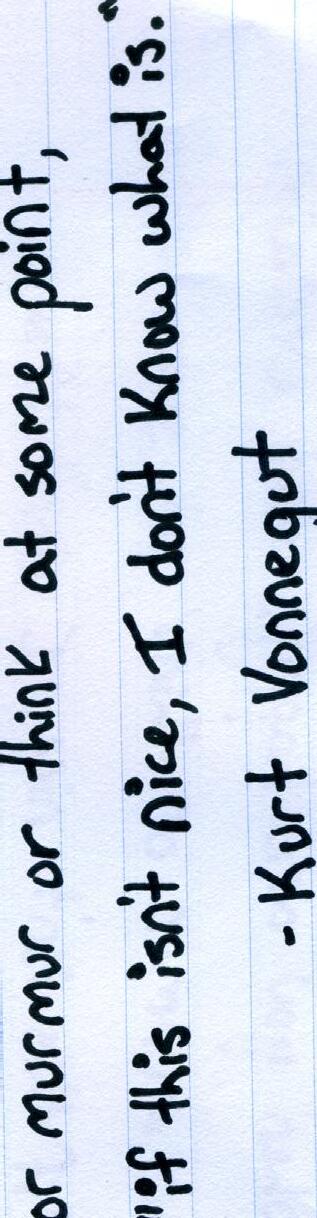 or murmur or think at some point,
'if this isn't nice, I don't know what is.'"
- Kurt Vonnegut